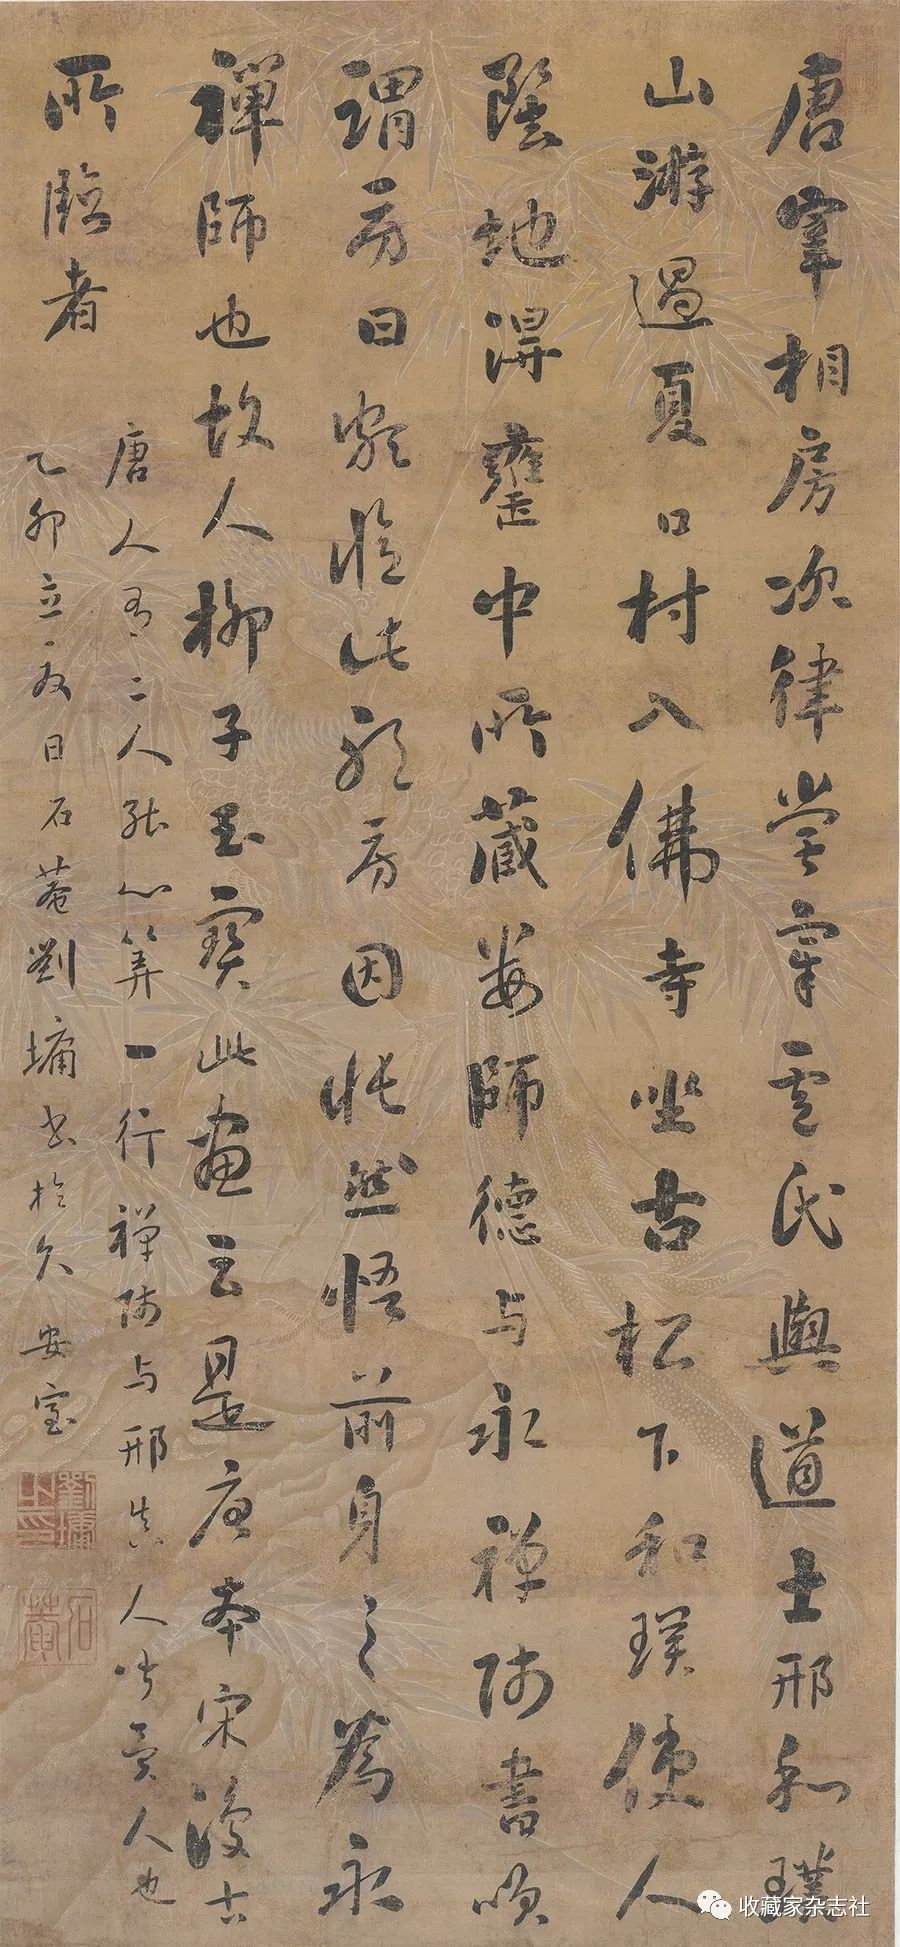 唐宰相房次律嘗宰盧氏與道士邢和璞
山游過夏口村入佛寺坐古松下和璞使人
鑿地得甕中所藏婁師德与永禅師書笑
謂房曰憶此耶房因悵然悟前身之為永
禪師也故人柳子玉寶此畫云是唐本宋復古
所臨者
唐人有二人能心算一行禅師与邢真人皆異人也
乙卯立夏日石菴劉墉書於久安室
劉墉之印
石菴
收藏家杂志社